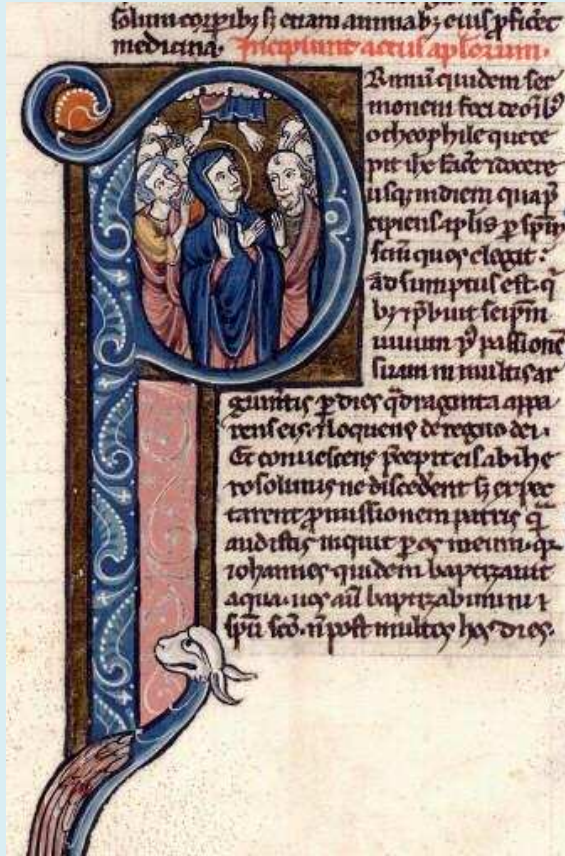 solum corꝑibꝫ sꝫ etiam animabꝫ eius ꝓficēt
medicina. Incipiunt actus apl̄orum.
PRimū quidem ser
monem feci de oībꝰ
o theophile que ce
pit ihc̄ facē ⁊ docere
usqꝫ in diem qua p̄
cipiens apl̄is ꝑ sp̄m
scm̄ quos elegit:
adsumptus est. qͥ
bꝫ ⁊ p̄buit seip̄m
uiuum ꝑ passionē
suam in multis ar
gum̄tis ꝑ dies qͣdraginta appa
rens eis. ⁊ loquens de regno dei.
Et conuescens p̄cepit eis ab ihe
rosolimis ne discedēnt sꝫ expec
tarent ꝓmissionem patris quā
audistis inquit ꝑ os meum. qꝛ
iohannes quidem baptizauit
aqua. uos aū baptizabimini
spū scō. n̄ post multos hos dies.